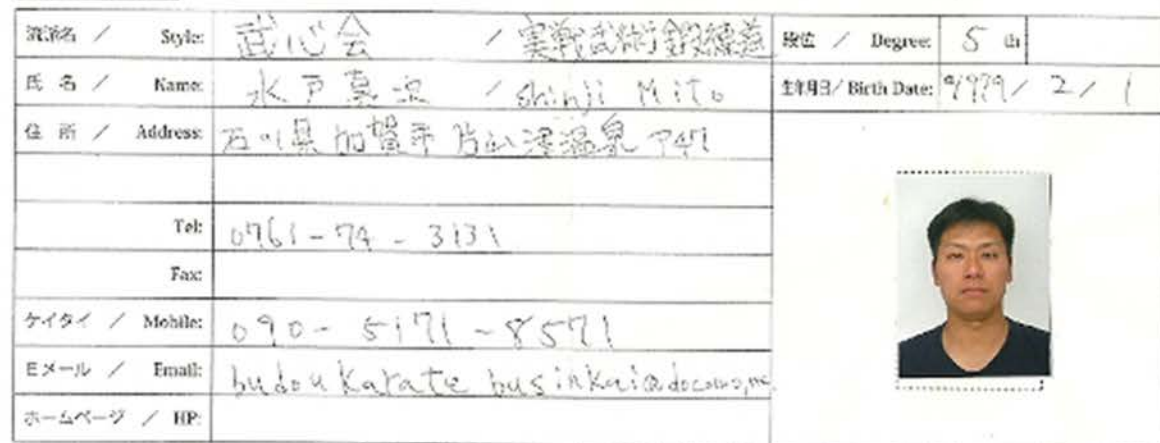 流派名 / Style: 武心会 / 実戦武術鍛錬道
段位 / Degree: 5 th
氏名 / Name: 水戸真次 / Shinji Mito
生年月日 / Birth Date: 1979 / 2 / 1
住所 / Address: 石川県加賀市片山津温泉ア47
Tel: 0761-74-3131
Fax:
ケイタイ / Mobile: 090-5171-8571
Eメール / Email: budou karate businkai@docomo.ne.
ホームページ / HP: